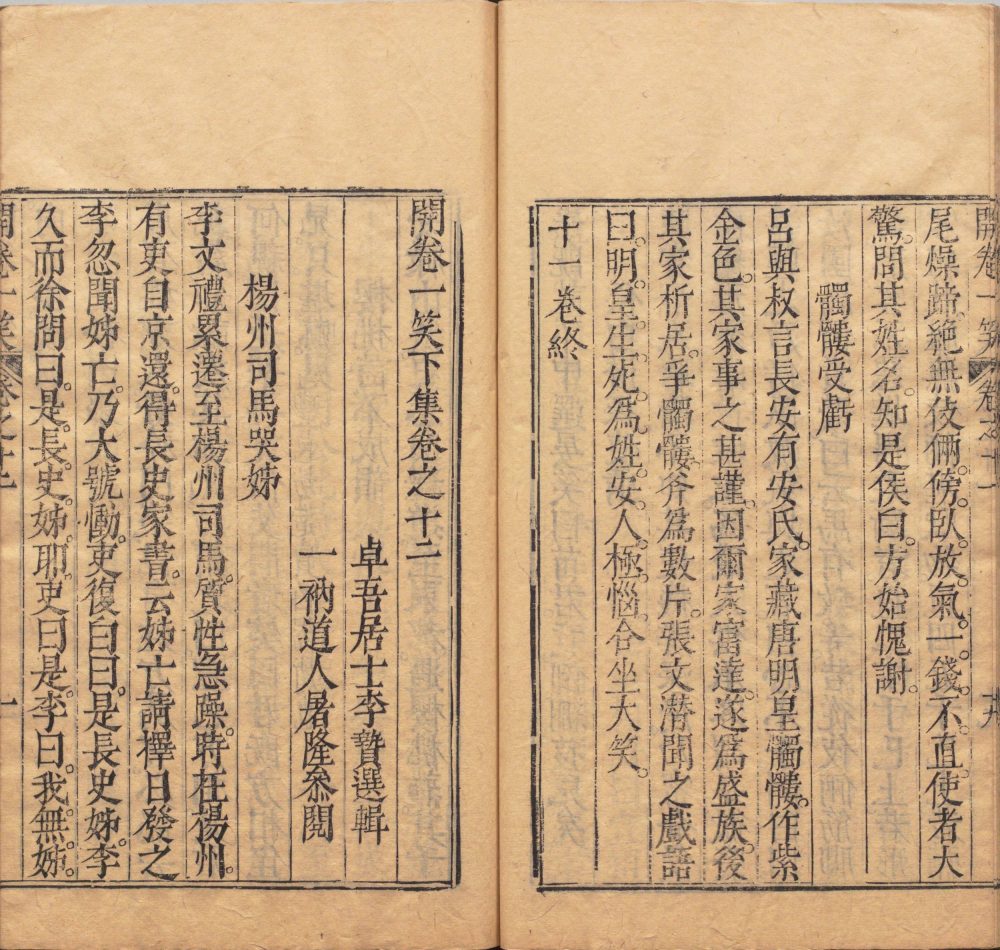 開卷一笑 卷之十一 十九
尾燥蹄絕無伎倆傍臥放氣一錢不直使者大
驚問其姓名知是侯白方始愧謝
髑髏受虧
呂與叔言長安有安氏家藏唐明皇髑髏作紫
金色其家事之甚謹因爾家富達遂為盛族後
其家析居爭髑髏斧為數片張文潛聞之戲語
曰明皇生死為姓安人極惱合坐大笑
十一卷終
開卷一笑下集卷之十二
卓吾居士李贄選輯
一衲道人屠隆叅閱
楊州司馬哭姊
李文禮累遷至楊州司馬質性急躁時在楊州
有吏自京還得長史家書云姊亡請擇日發之
李忽聞姊亡乃大號慟吏復白曰是長史姊李
久而徐問曰是長史姊耶吏曰是李曰我無姊
開卷一笑 卷之十二 一